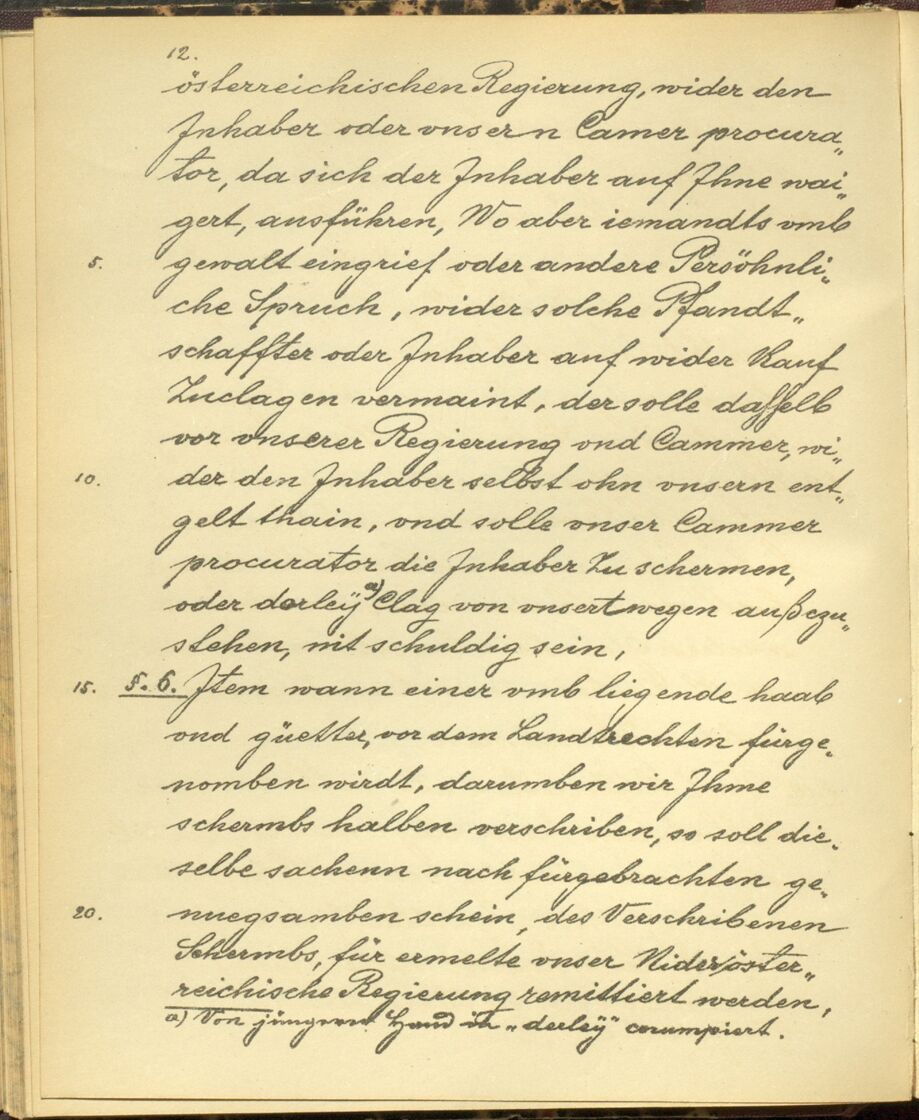 12.
österreichischen Regierung, wider den
Inhaber oder vnsern Camer procura„
tor, da sich der Inhaber auf Ihne wai„
gert, ausführen, Wo aber iemandts vmb
5. gewalt eingrief oder andere Persöhnli„
che Spruch, wider solche Pfandt„
schaffter oder Inhaber auf wider Kauf
Zuclagen vermaint, der solle dasselb
vor vnserer Regierung vnd Cammer, wi„
10. der den Inhaber selbst ohn vnsern ent„
gelt thain, vnd solle vnser Cammer
procurator die Inhaber Zu schermen,
oder dorleÿ a) Clag von vnsertwegen außzu„
stehen, nit schuldig sein,
15. §. 6. Item wann einer vmb liegende haab
vnd güetter, vor dem Landtrechten fürge„
nomben wirdt, darumben wir Ihme
schermbs halben verschriben, so soll die„
selbe sachenn nach fürgebrachten ge„
20. nuegsamben schein, des Verschribenen
Schermbs, für ermelte vnser Nideröster„
reichische Regierung remittiert werden,
a) Von jüngerer Hand in „derleÿ" corrumpiert.